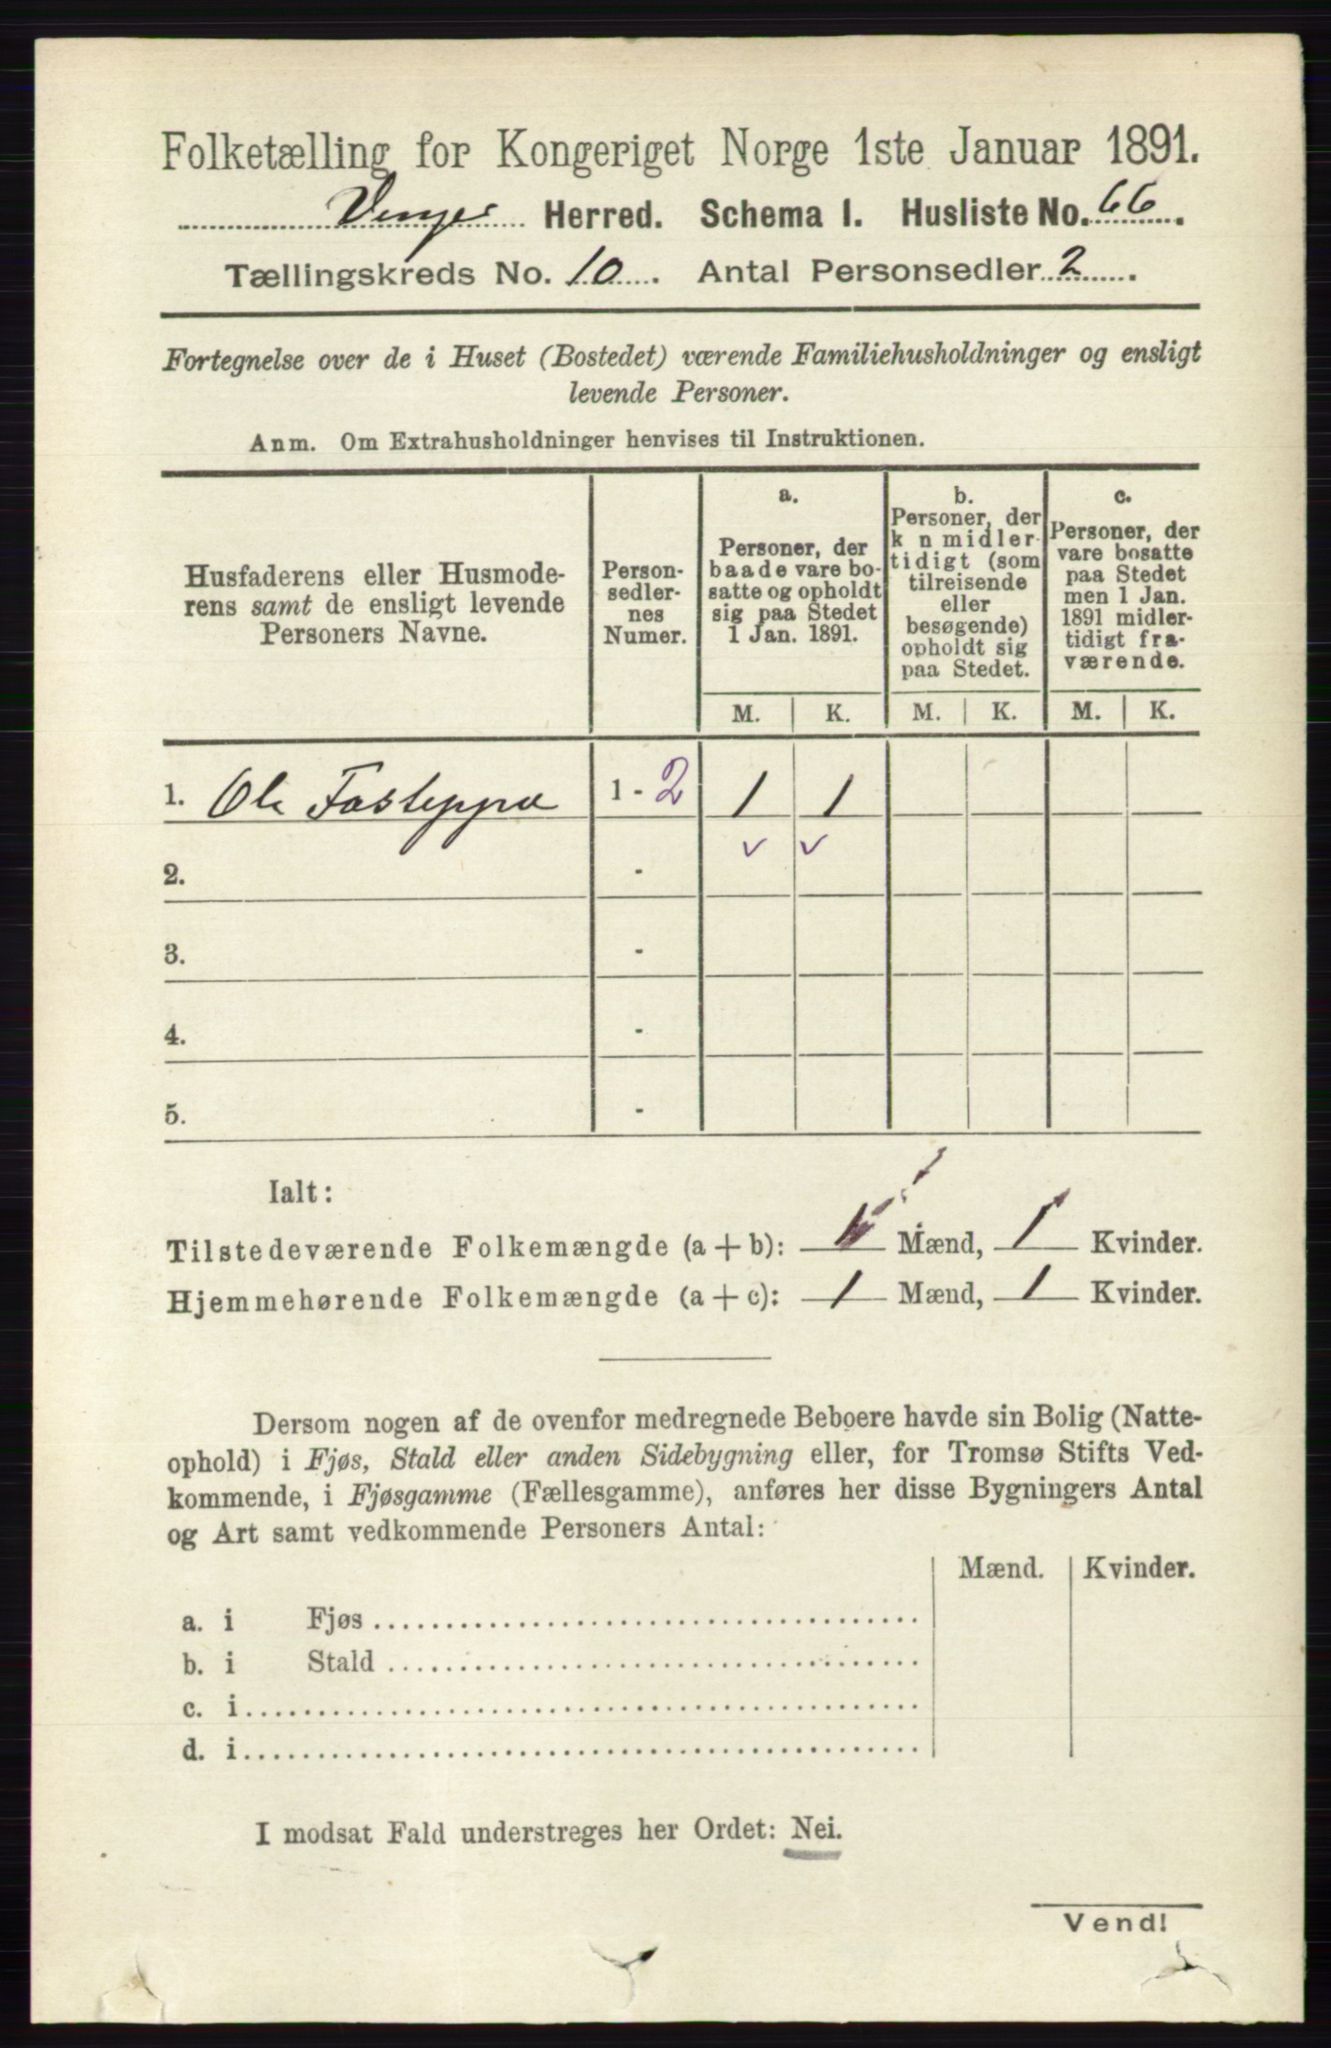 Folketælling for Kongeriget Norge 1ste Januar 1891.
Vinger Herred. Schema I. Husliste No. 66.
Tællingskreds No. 10. Antal Personsedler 2.
Fortegnelse over de i Huset (Bostedet) værende Familiehusholdninger og ensligt
levende Personer.
Anm. Om Extrahusholdninger henvises til Instruktionen.
Husfaderens eller Husmode-
rens samt de ensligt levende
Personers Navne.
Person-
sedler-
nes
Numer.
a.
Personer, der
baade vare bo-
satte og opholdt
sig paa Stedet
1 Jan. 1891.
b.
Personer, der
k n midler-
tidigt (som
tilreisende
eller
besøgende)
opholdt sig
paa Stedet.
c.
Personer, der
vare bosatte
paa Stedet
men 1 Jan.
1891 midler-
tidigt fra-
værende.
M. K. M. K. M. K.
1. Ole 1 - 2 1 1
2. - v v
3. -
4. -
5. -
Ialt:
Tilstedeværende Folkemængde (a + b): Mænd, 1 Kvinder.
Hjemmehørende Folkemængde (a + c): 1 Mænd, 1 Kvinder.
Dersom nogen af de ovenfor medregnede Beboere havde sin Bolig (Natte-
ophold) i Fjøs, Stald eller anden Sidebygning eller, for Tromsø Stifts Ved-
kommende, i Fjøsgamme (Fællesgamme), anføres her disse Bygningers Antal
og Art samt vedkommende Personers Antal:
Mænd. Kvinder.
a. i Fjøs
b. i Stald
c. i
d. i
I modsat Fald understreges her Ordet: Nei.
Vend!